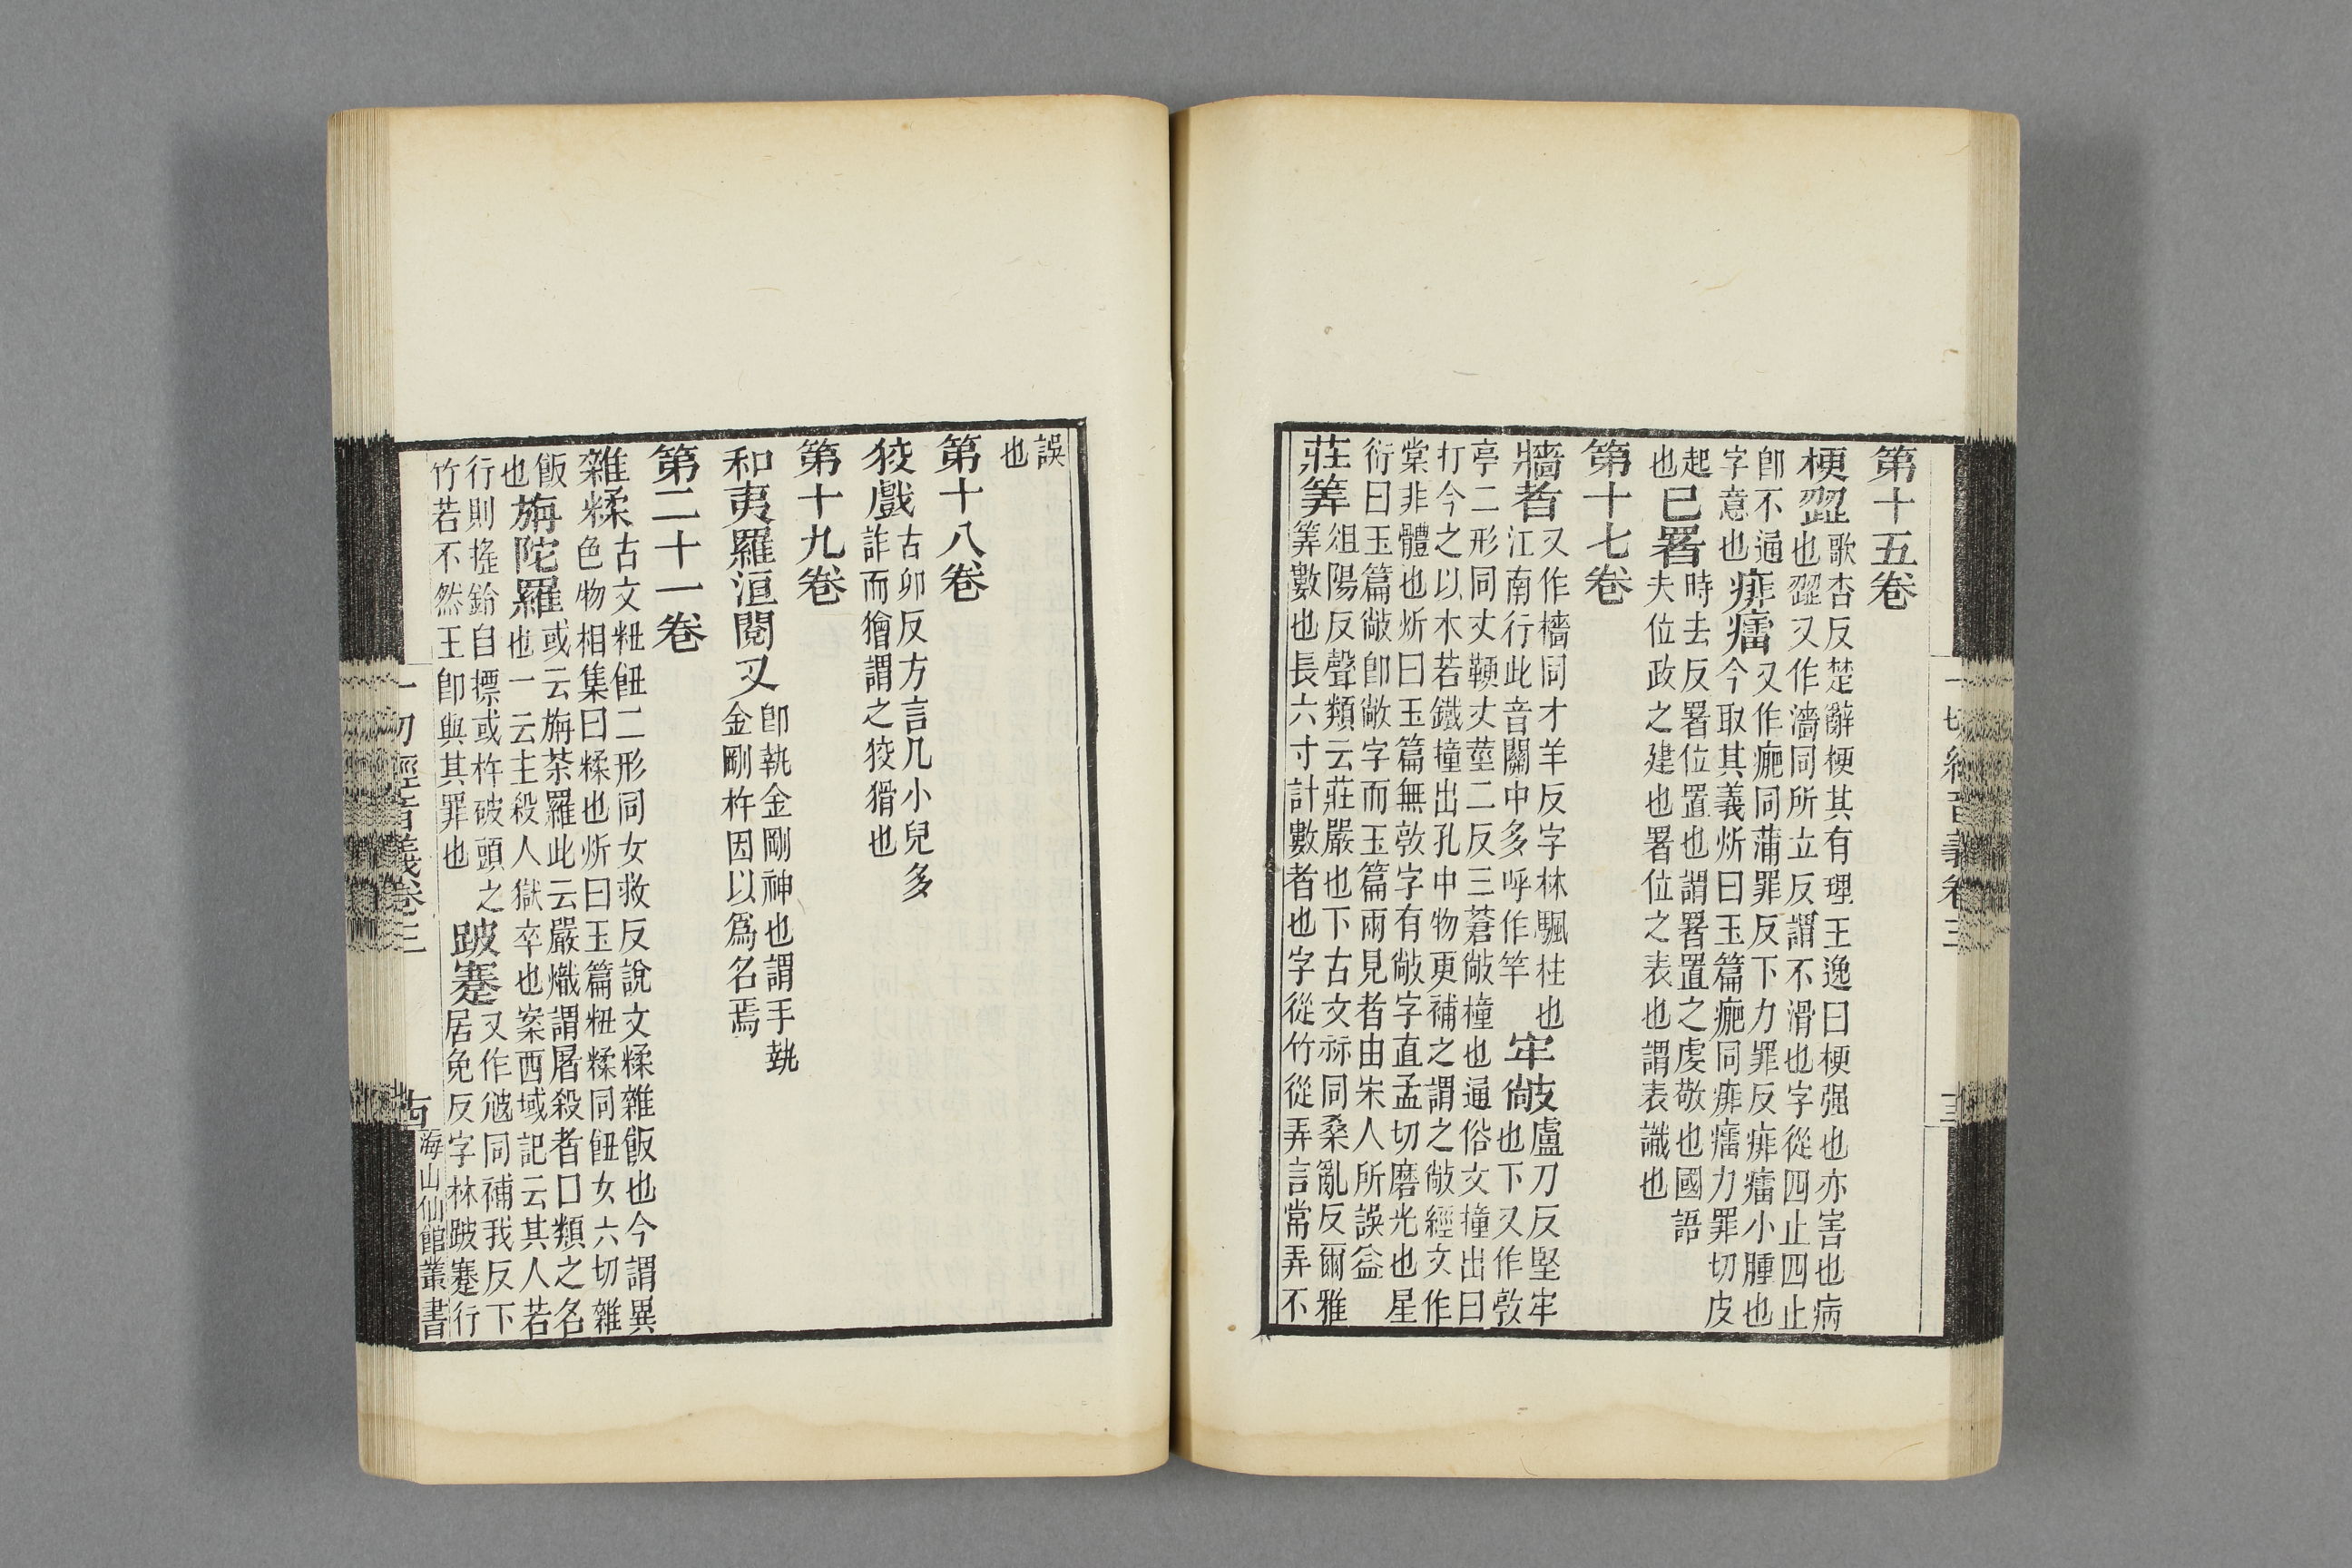 第十五卷
梗澀歌杏反楚辭梗其有理王逸曰梗强也亦害也病
也澀又作濇同所立反謂不滑也字從四止四止
卽不通
字意也痱癗又作㿈同蒲罪反下力罪反痱癗小腫也
今取其義炘曰玉篇㿈同痱癗力罪切皮
起
也已署時去反署位置也謂署置之處敬也國語
夫位政之建也署位之表也謂表識也
第十七卷
牆者又作檣同才羊反字林颿柱也
江南行此音關中多呼作竿牢敞盧刀反堅牢
也下又作敦
亭二形同丈鞕丈莖二反三蒼敞橦也通俗文撞出曰
打今之以木若鐵撞出孔中物更補之謂之敞經文作
棠非體也炘曰玉篇無敦字有敞字直孟切磨光也星
衍曰玉篇敞卽敞字而玉篇兩見者由宋人所誤益
莊筭俎陽反聲類云莊嚴也下古文祘同桑亂反爾雅
筭數也長六寸計數者也字從竹從弄言常弄不
誤
也
第十八卷
狡戲古卯反方言凡小兒多
詐而獪謂之狡猾也
第十九卷
和夷羅洹閱叉卽執金剛神也謂手執
金剛杵因以爲名焉
第二十一卷
雜糅古文粈飿二形同女救反說文糅雜飯也今謂異
色物相集曰糅也炘曰玉篇粈糅同飿女六切雜
飯
也旃陀羅或云旃荼羅此云嚴熾謂屠殺者口類之名
也一云主殺人獄卒也案西域記云其人若
行則搖鈴自摽或杵破頭之
竹若不然王卽與其罪也跛蹇又作𡰠同補我反下
居免反字林跛蹇行
一切經音義卷三
海山仙館叢書